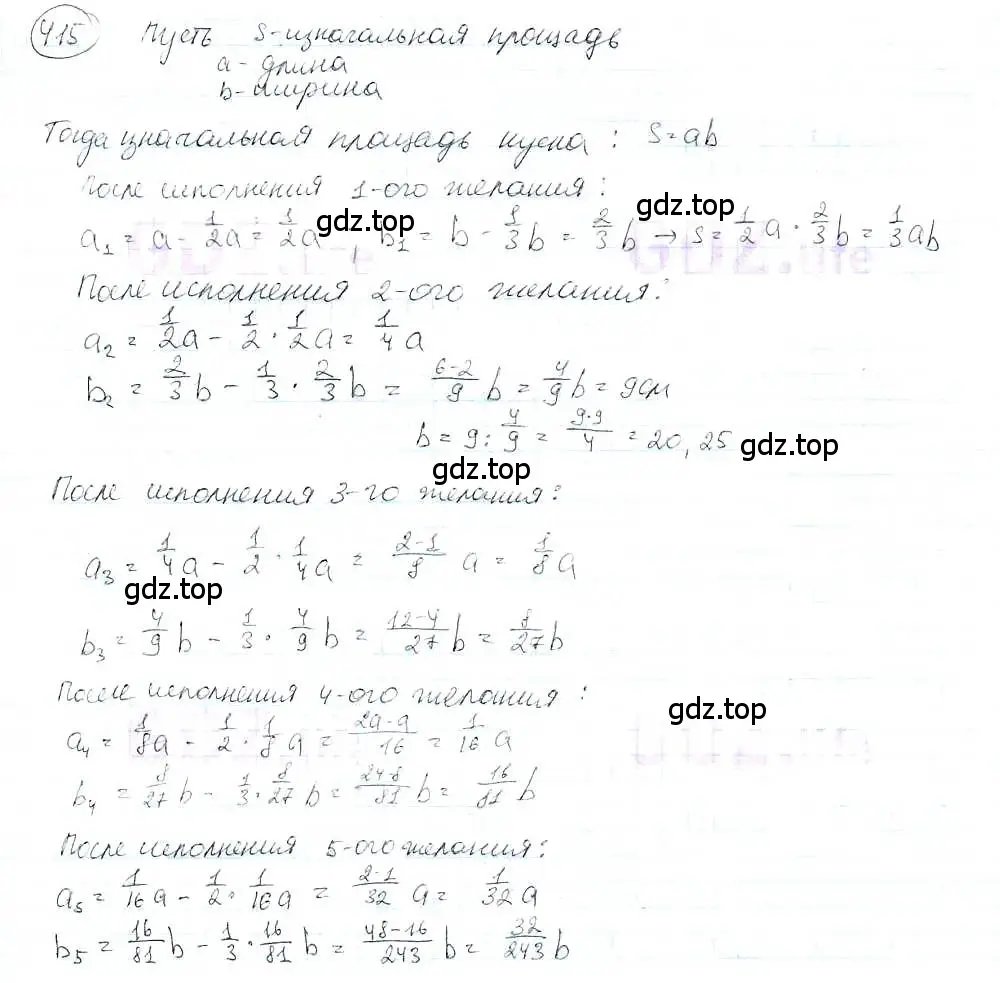 415 Пусть S-изначальная площадь
a - длина
b - ширина
Тогда изначальная площадь куска: S = ab
После исполнения 1-ого желания:
gdz.top
gdz.top
a₁ = a - 1/2 a = 1/2 a, b₁ = b - 1/3 b = 2/3 b → S = 1/2 a · 2/3 b = 1/3 ab
После исполнения 2-ого желания:
a₂ = 1/2 a - 1/2 · 1/2 a = 1/4 a
b₂ = 2/3 b - 1/3 · 2/3 b = (6-2)/9 b = 4/9 b = 9см
b = 9 : 4/9 = (9·9)/4 = 20,25
gdz.top
gdz.top
После исполнения 3-го желания:
a₃ = 1/4 a - 1/2 · 1/4 a = (2-1)/8 a = 1/8 a
gdz.top
b₃ = 4/9 b - 1/3 · 4/9 b = (12-4)/27 b = 8/27 b
После исполнения 4-ого желания:
gdz.top
a₄ = 1/8 a - 1/2 · 1/8 a = (2a-a)/16 = 1/16 a
b₄ = 8/27 b - 1/3 · 8/27 b = (24-8)/81 b = 16/81 b
После исполнения 5-ого желания:
a₅ = 1/16 a - 1/2 · 1/16 a = (2-1)/32 a = 1/32 a
b₅ = 16/81 b - 1/3 · 16/81 b = (48-16)/243 b = 32/243 b